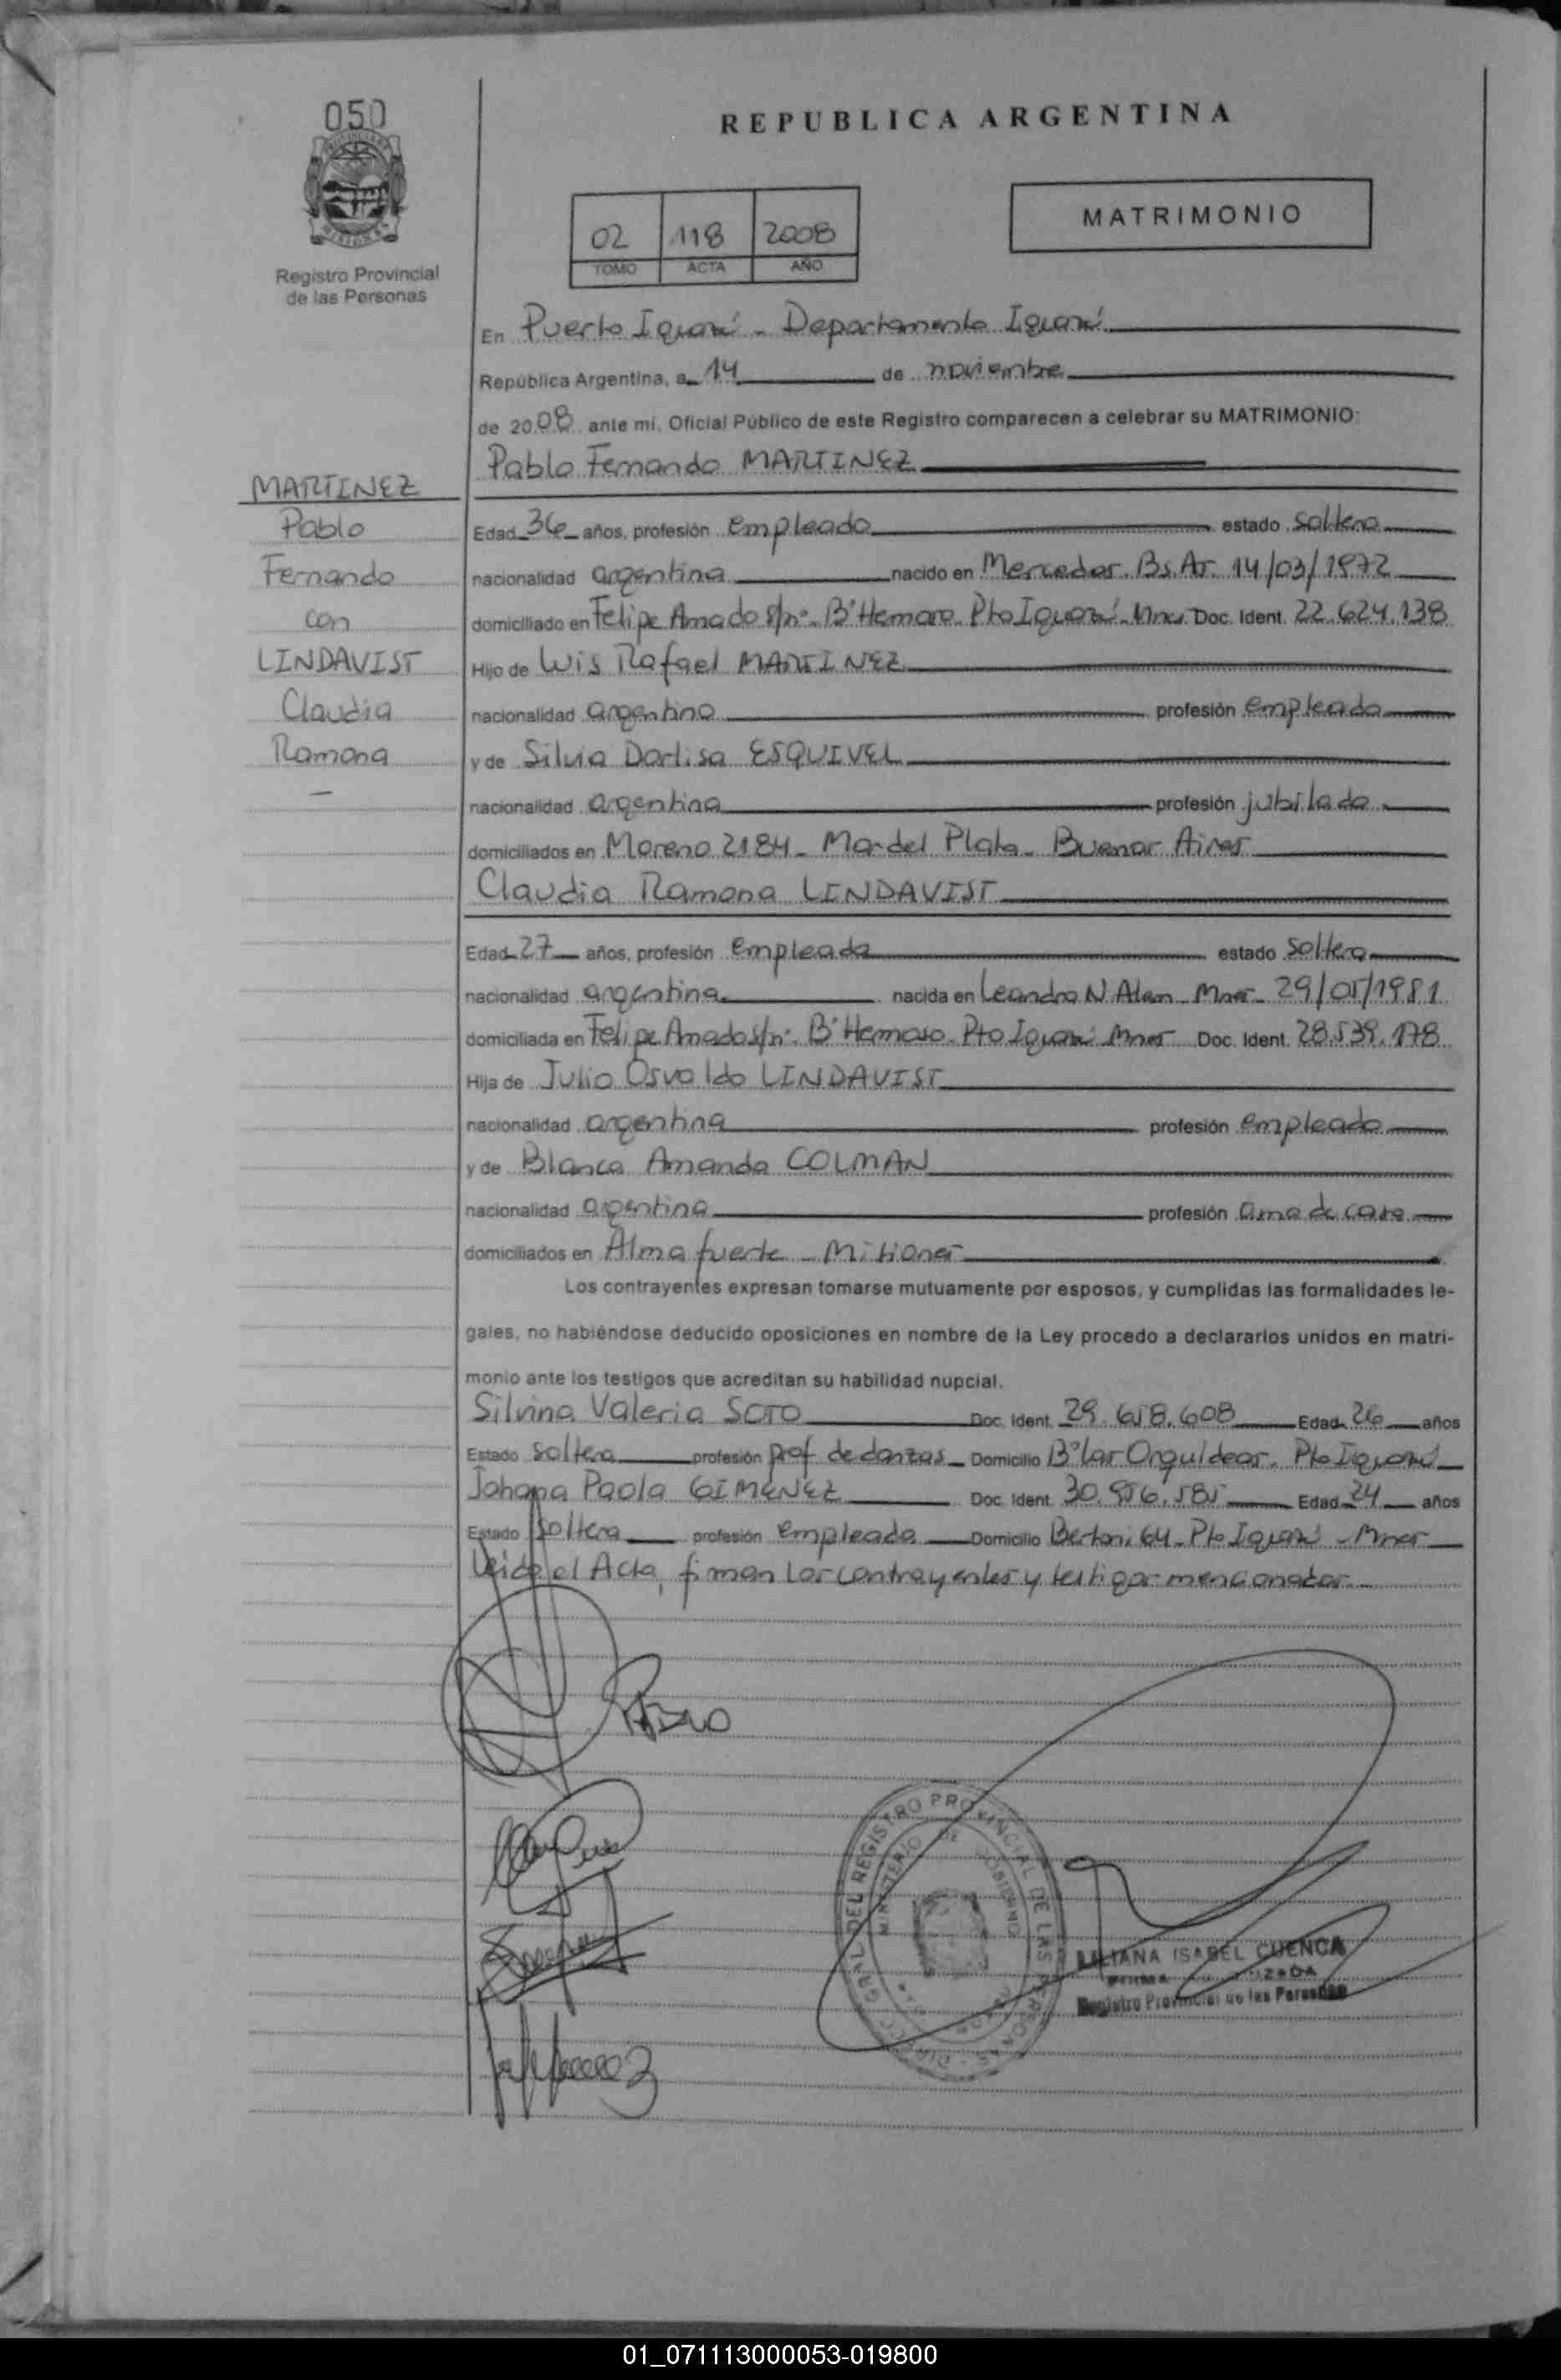 050
REPUBLICA ARGENTINA
02 118 2008
TOMO ACTA AÑO
MATRIMONIO
Registro Provincial
de las Personas
En Puerto Iguazú - Departamento Iguazú
República Argentina, a 14 de noviembre
de 2008 ante mí, Oficial Público de este Registro comparecen a celebrar su MATRIMONIO:
Pablo Fernando MARTINEZ
MARTINEZ
Pablo
Fernando
con
LINDAVIST
Claudia
Ramona
Edad 36 años, profesión empleado estado soltero
nacionalidad argentina nacido en Mercedes. Bs. As. 14/03/1972
domiciliado en Felipe Amado s/nº. Bº Hermoso. Pto Iguazú. Mnes Doc. Ident. 22.624.138
Hijo de Luis Rafael MARTINEZ
nacionalidad argentina profesión empleado
y de Silvia Dorlisa ESQUIVEL
nacionalidad argentina profesión jubilada
domiciliados en Moreno 2184 - Mar del Plata - Buenos Aires
Claudia Ramona LINDAVIST
Edad 27 años, profesión empleada estado soltera
nacionalidad argentina nacida en Leandro N Alem - Mnes - 29/05/1981
domiciliada en Felipe Amado s/nº. Bº Hermoso - Pto Iguazú Mnes Doc. Ident. 28.539.178
Hija de Julio Osvaldo LINDAVIST
nacionalidad argentina profesión empleado
y de Blanca Amanda COLMAN
nacionalidad argentina profesión ama de casa
domiciliados en Almafuerte - Misiones
Los contrayentes expresan tomarse mutuamente por esposos, y cumplidas las formalidades le-
gales, no habiéndose deducido oposiciones en nombre de la Ley procedo a declararlos unidos en matri-
monio ante los testigos que acreditan su habilidad nupcial.
Silvina Valeria SOTO Doc. Ident. 29.658.608 Edad 26 años
Estado soltera profesión prof. de danzas Domicilio Bº Las Orquídeas. Pto Iguazú
Johana Paola GIMENEZ Doc. Ident. 30.956.585 Edad 24 años
Estado soltera profesión empleada Domicilio Bertoni 64 - Pto Iguazú - Mnes
Leida el Acta, firman los contrayentes y testigos mencionados.
PABLO
DIRECC. GRAL. DEL REGISTRO PROVINCIAL DE LAS PERSONAS
MINISTERIO DE GOBIERNO
LILIANA ISABEL CUENCA
Registro Provincial de las Personas
01_071113000053-019800